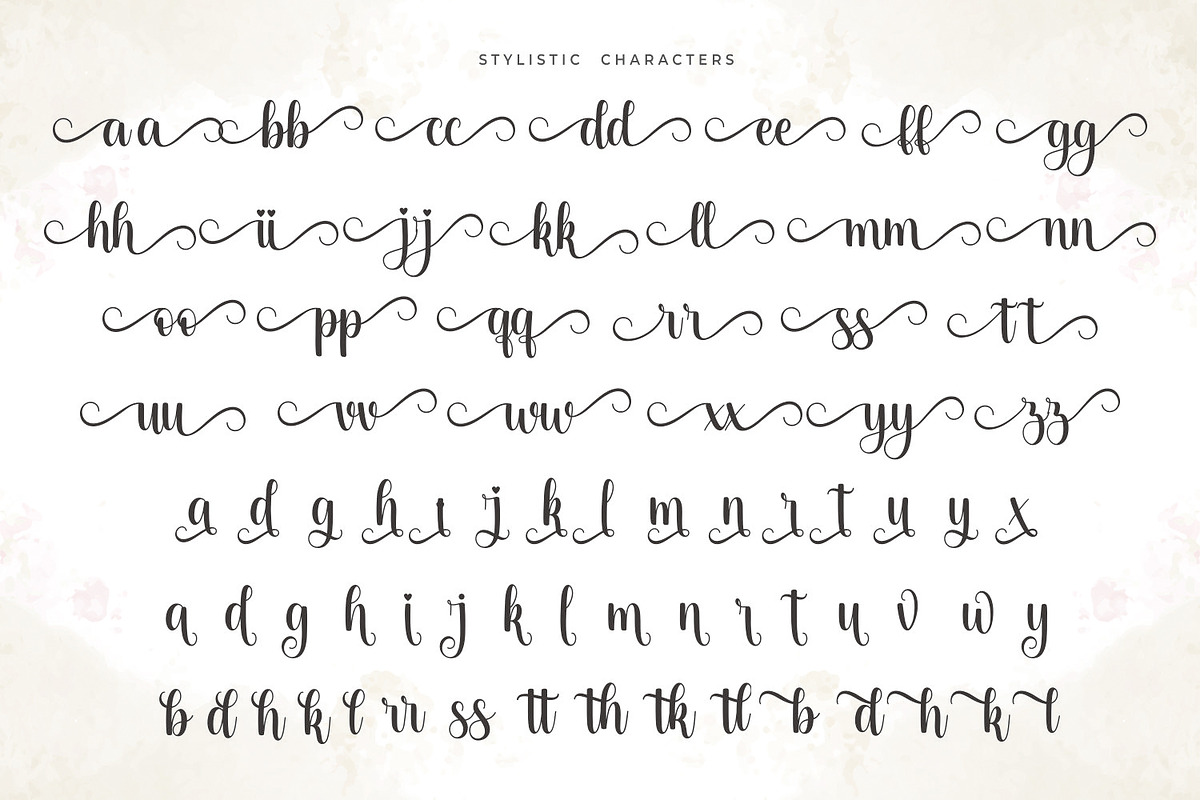 STYLISTIC CHARACTERS
aa bb cc dd ee ff gg
hh ii jj kk ll mm nn
oo pp qq rr ss tt
uu vv ww xx yy zz
a d g h i j k l m n r t u y x
a d g h i j k l m n r t u v w y
b d h k l rr ss tt th tk tl b d h k l